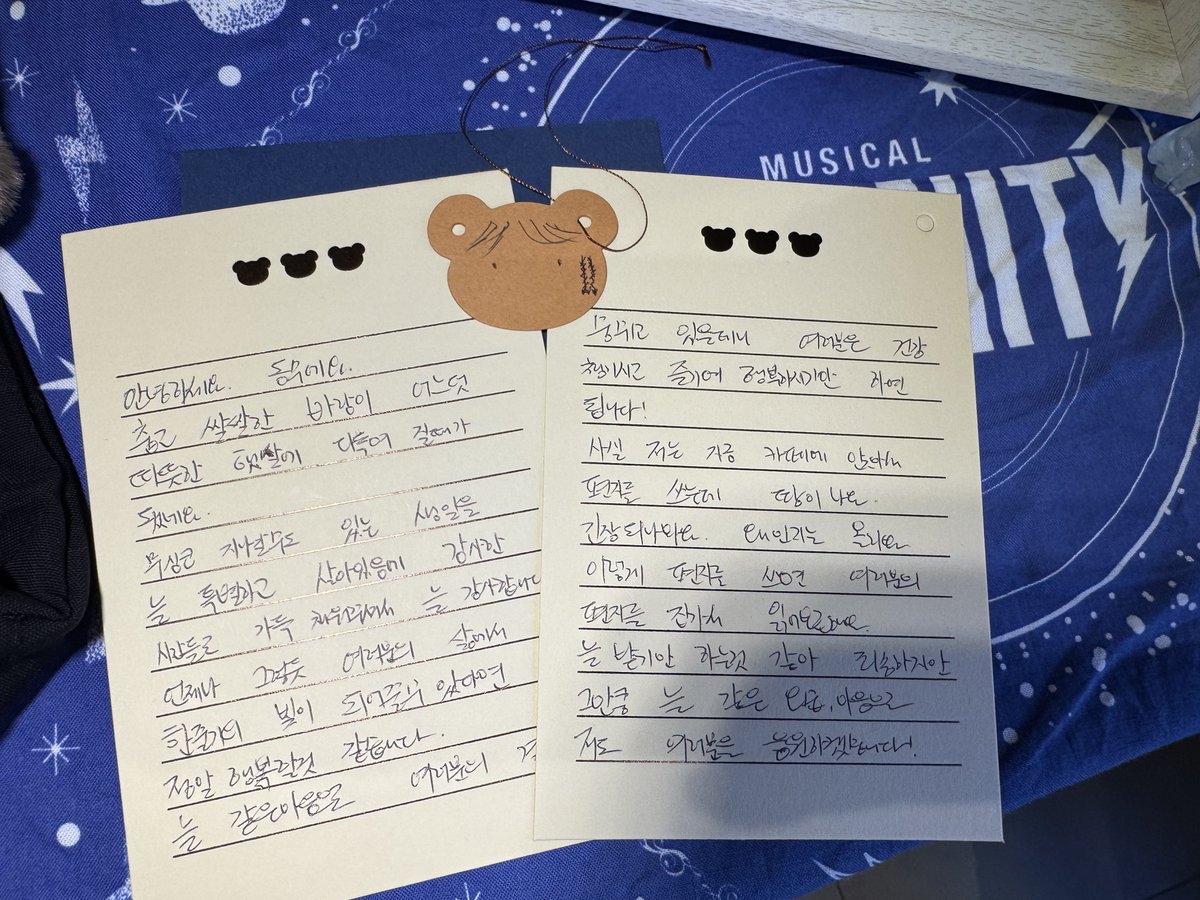 MUSICAL
NITY
안녕하세요. 동우에요.
춥고 쌀쌀한 바람이 어느덧
따뜻한 햇살에 다독여 질때가
됐네요.
무심코 지나갈수도 있는 생일을
늘 특별하고 살아있음에 감사한
시간들로 가득 채워주셔서 늘 감사합니다
언제나 그렇듯 여러분의 삶에서
한줄기의 빛이 되어줄수 있다면
정말 행복할것 같습니다.
늘 같은마음일 여러분의
있을테니 여러분은 건강
챙기시고 즐기며 행복하시기만 하면
됩니다!
사실 저는 지금 카페에 앉아서
편지를 쓰는데 땀이 나요.
긴장되나봐요. 왜인지는 몰라요
이렇게 편지를 쓰면 여러분의
편지를 읽어보는데
늘 받기만 하는것 같아 죄송하지만
그만큼 늘 같은 마음으로
저도 여러분을 응원하겠습니다!